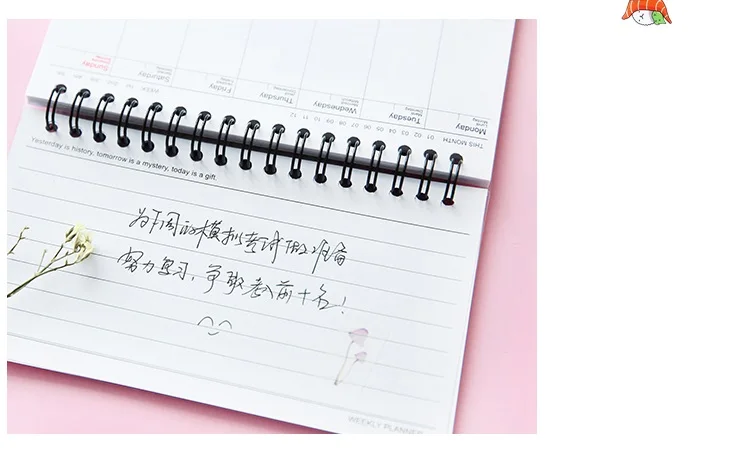 Sunday
Saturday
WEEK
Friday
Thursday
Wednesday
Tuesday
Monday
THIS MONTH 01 02 03 04 05 06 07 08 09 10 11 12
Yesterday is history, tomorrow is a mystery, today is a gift.
为下周的模拟考试做准备
努力复习，争取考入前十名！
WEEKLY PLANNER